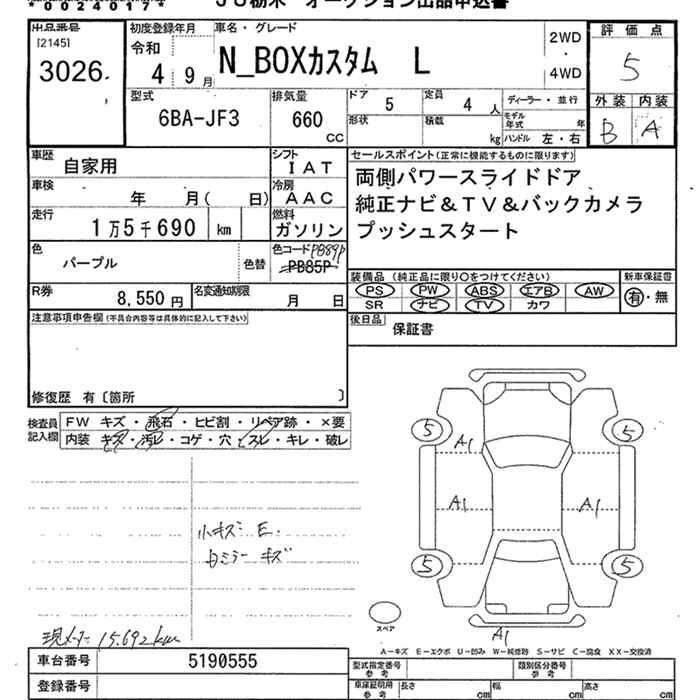 *00240117* JU栃木 オークション出品申込書
出品番号
[2145]
3026
初度登録年月
令和
4 9月
車名・グレード
N_BOXカスタム L
2WD
・
4WD
評価点
5
外装 内装
B A
型式
6BA-JF3
排気量
660
CC
ドア 5
定員 4 人
形状
積載 kg
ディーラー・並行
モデル年式 年
ハンドル 左・右
車歴
自家用
シフト
IAT
車検
年 月( 日)
冷房
AAC
走行
1万5千690 km
燃料
ガソリン
セールスポイント(正常に機能するものに限ります)
両側パワースライドドア
純正ナビ&TV&バックカメラ
プッシュスタート
色
パープル
色替
色コード PB89P
PB85P
装備品(純正品に限り○をつけてください)
PS PW ABS エアB AW
SR ナビ TV カワ
新車保証書
有・無
R券
8,550円
名変通知期限
月 日
後日品
保証書
注意事項申告欄(不具合内容等は具体的に記入して下さい)
修復歴 有〔箇所 〕
検査員記入欄
FW キズ・飛石・ヒビ割・リペア跡・×要
内装 キズ・汚レ・コゲ・穴・スレ・キレ・破レ
小キズ E.
ミラー キズ
現メーター 15,692km
5
5
A1
A1
A1
5
5
スペア
A1
A-キズ E-エクボ U-凹み W-補修跡 S-サビ C-腐食 XX-交換済
車台番号
5190555
登録番号
型式指定番号
参考
類別区分番号
参考
車庫証明用
参考
長さ cm
幅 cm
高さ cm